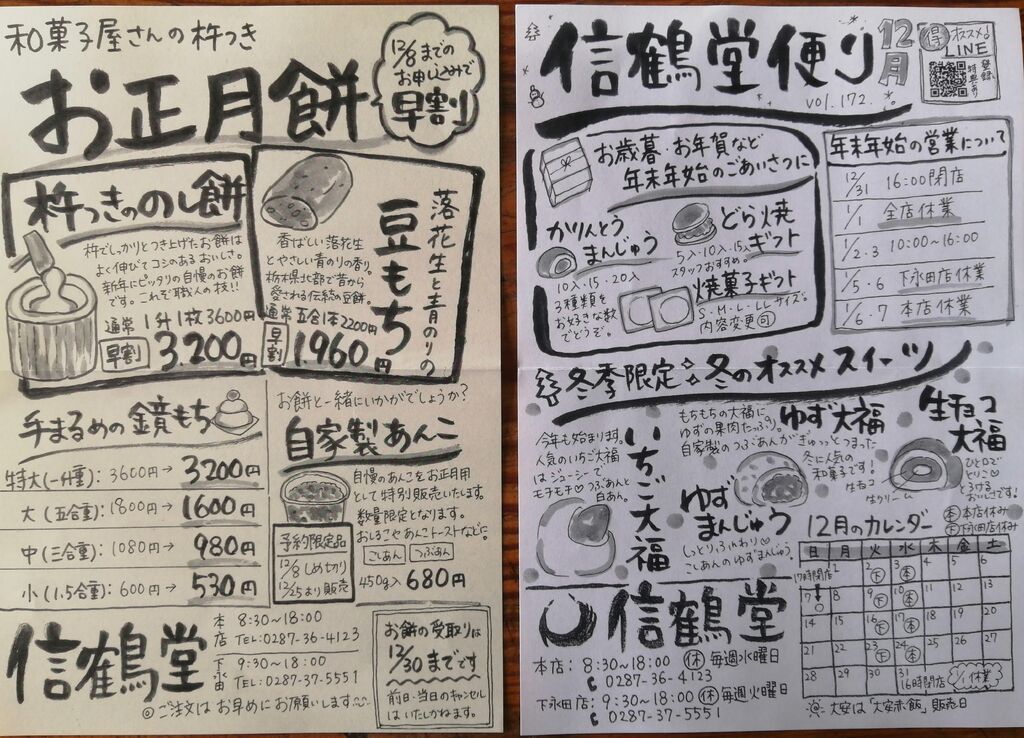 和菓子屋さんの杵つき
お正月餅
12/8までの
お申し込みで
早割
杵つきののし餅
杵でしっかりとつき上げたお餅は
よく伸びてコシのあるおいしさ。
新年にピッタリの自慢のお餅
です。これぞ職人の技!!
通常 1升1枚3600円
早割 3.200円
落花生と青のりの
豆もち
香ばしい落花生
とやさしい青のりの香り。
栃木県北部で昔から
愛される伝統の豆餅。
通常 五合1本2200円
早割 1.960円
手まるめの鏡もち
特大(一升種): 3600円→ 3200円
大 (五合重): 1800円→ 1600円
中 (三合重): 1080円→ 980円
小 (1.5合重): 600円→ 530円
お餅と一緒にいかがでしょうか?
自家製あんこ
自慢のあんこをお正月用
として特別販売いたします。
数量限定となります。
おしるこやあんこトーストなどに。
こしあん つぶあん
450g入 680円
予約限定品
12/8しめきり
12/25より販売
信鶴堂
本店 8:30~18:00
TEL:0287-36-4123
下永田 9:30~18:00
TEL:0287-37-5551
◎ご注文はお早めにお願いします
お餅の受取りは
12/30までです
前日・当日のキャンセル
はいたしかねます。
信鶴堂便り
vol.172.
12月
得 オススメ!
LINE
登録
特典あり
お歳暮・お年賀など
年末年始のごあいさつに
かりんとう
まんじゅう
10入・15・20入
3種類を
お好きな数
でどうぞ。
どら焼
ギフト
5入・10入・15入
スタッフおすすめ。
焼菓子ギフト
S・M・L・LLサイズ。
内容変更可
年末年始の営業について
12/31 16:00閉店
1/1 全店休業
1/2.3 10:00~16:00
1/5・6 下永田店休業
1/6・7 本店休業
冬季限定 冬のオススメスイーツ
いちご大福
今年も始まります。
人気のいちご大福
はジューシーで
モチモチ♡つぶあんと
白あん。
ゆず大福
もちもちの大福に
ゆずの果肉たっぷり。
自家製のつぶあんがぎゅっとつまった
冬に人気の
和菓子です!
ゆず
まんじゅう
しっとりふんわり♡
こしあんのゆずまんじゅう。
生チョコ
大福
生チョコ
生クリーム
ひと口で
とりこ♡
とろける
おいしさです!
12月のカレンダー
本 本店休み
下 下永田店休み
日 月 火 水 木 金 土
1 2下 3本 4 5 6
17時閉店
7 8 9下 10本 11 12 13
14 15 16下 17本 18 19 20
21 22 23下 24本 25 26 27
28 29 30 31
16時閉店
1/1休業
大安は「大安赤飯」販売日
信鶴堂
本店: 8:30~18:00 休 毎週水曜日
0287-36-4123
下永田店: 9:30~18:00 休 毎週火曜日
0287-37-5551